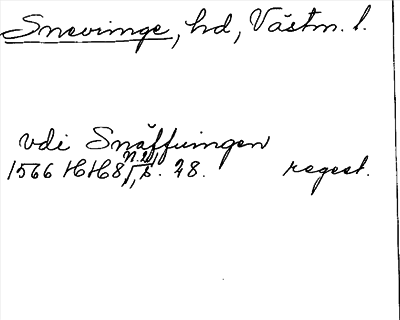 Snevringe, hd, Västm. l.
vdi Snäffuingen
1566 HH 8 b. 28. regest.